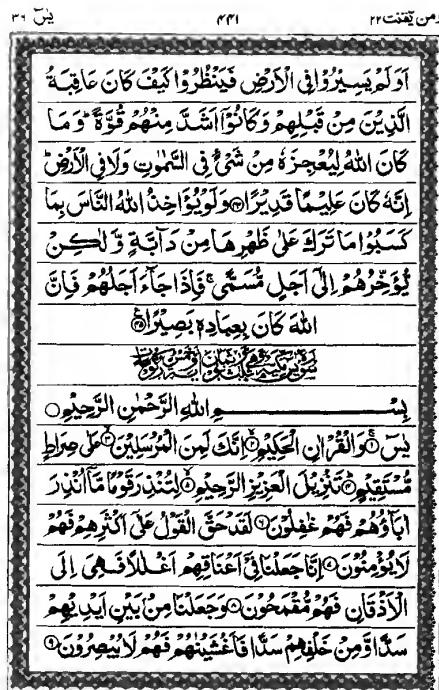 ومن يقنت ٢٢ ٤٤١ يٰسٓ ٣٦
اَوَلَمْ يَسِيْرُوْا فِى الْاَرْضِ فَيَنْظُرُوْا كَيْفَ كَانَ عَاقِبَةُ
الَّذِيْنَ مِنْ قَبْلِهِمْ وَكَانُوْٓا اَشَدَّ مِنْهُمْ قُوَّةً ؕ وَمَا
كَانَ اللّٰهُ لِيُعْجِزَهٗ مِنْ شَىْءٍ فِى السَّمٰوٰتِ وَلَا فِى الْاَرْضِ ؕ
اِنَّهٗ كَانَ عَلِيْمًا قَدِيْرًا ﴿۴۴﴾ وَلَوْ يُؤَاخِذُ اللّٰهُ النَّاسَ بِمَا
كَسَبُوْا مَا تَرَكَ عَلٰى ظَهْرِهَا مِنْ دَآبَّةٍ وَّلٰكِنْ
يُّؤَخِّرُهُمْ اِلٰٓى اَجَلٍ مُّسَمًّى ۚ فَاِذَا جَآءَ اَجَلُهُمْ فَاِنَّ
اللّٰهَ كَانَ بِعِبَادِهٖ بَصِيْرًا ﴿۴۵﴾
بِسْمِ اللّٰهِ الرَّحْمٰنِ الرَّحِيْمِ
يٰسٓ ﴿۱﴾ وَالْقُرْاٰنِ الْحَكِيْمِ ﴿۲﴾ اِنَّكَ لَمِنَ الْمُرْسَلِيْنَ ﴿۳﴾ عَلٰى صِرَاطٍ
مُّسْتَقِيْمٍ ﴿۴﴾ تَنْزِيْلَ الْعَزِيْزِ الرَّحِيْمِ ﴿۵﴾ لِتُنْذِرَ قَوْمًا مَّآ اُنْذِرَ
اٰبَآؤُهُمْ فَهُمْ غٰفِلُوْنَ ﴿۶﴾ لَقَدْ حَقَّ الْقَوْلُ عَلٰٓى اَكْثَرِهِمْ فَهُمْ
لَا يُؤْمِنُوْنَ ﴿۷﴾ اِنَّا جَعَلْنَا فِىْٓ اَعْنَاقِهِمْ اَغْلٰلًا فَهِىَ اِلَى
الْاَذْقَانِ فَهُمْ مُّقْمَحُوْنَ ﴿۸﴾ وَجَعَلْنَا مِنْۢ بَيْنِ اَيْدِيْهِمْ
سَدًّا وَّمِنْ خَلْفِهِمْ سَدًّا فَاَغْشَيْنٰهُمْ فَهُمْ لَا يُبْصِرُوْنَ ﴿۹﴾